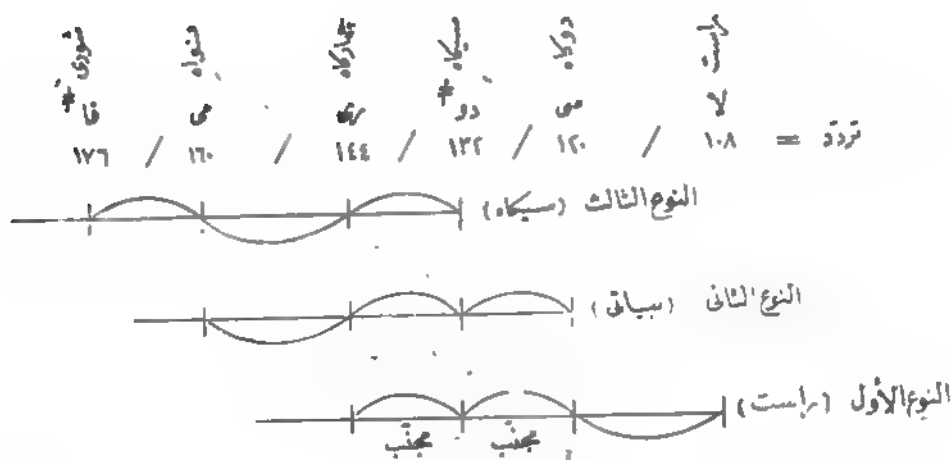 راست دوكاه سيكاه چهاركاه
لا سى دو# رى مى فا#
تردد = ١٠٨ / ١٢٠ / ١٣٢ / ١٤٤ / ١٦٠ / ١٧٦
النوع الثالث (سيكاه)
النوع الثانى (بياتى)
النوع الأول (راست)
مجنّب مجنّب